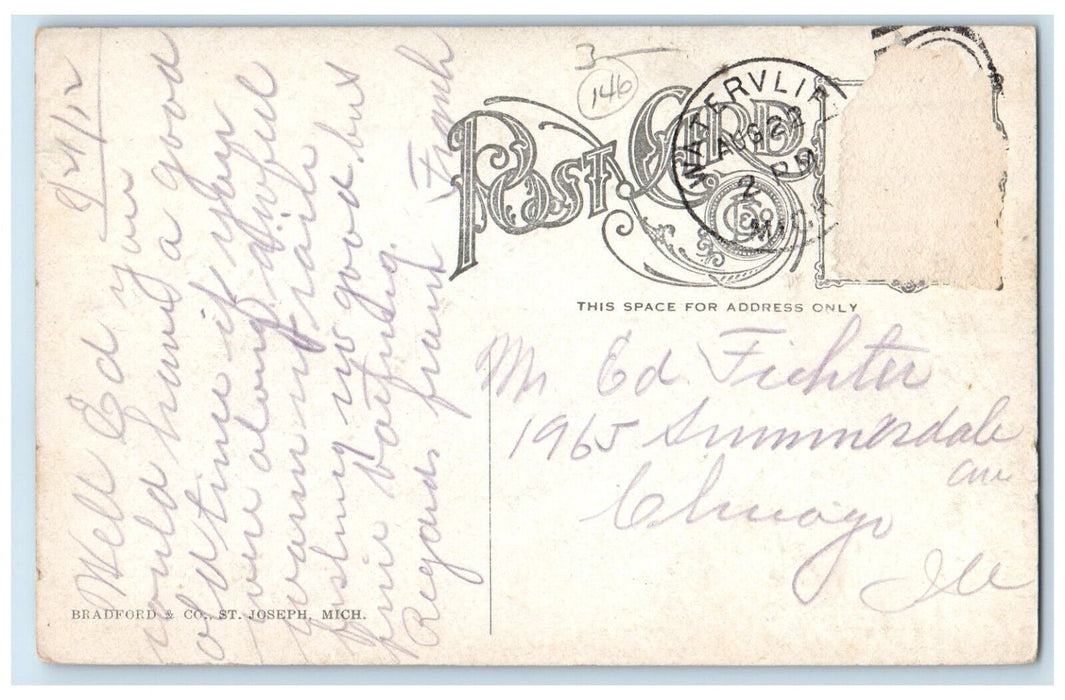 9/21/12
Well Ed you
would have a good
old time if you
were along. Awful
warm
fishing no good but
fine boating.
Regards from Frank
3
146
POST CARD
WATERVLIET
AUG 22
2 PM
MICH
THIS SPACE FOR ADDRESS ONLY
Mr Ed Fichter
1965 Summerdale
Ave
Chicago
Ill
BRADFORD & CO., ST. JOSEPH, MICH.